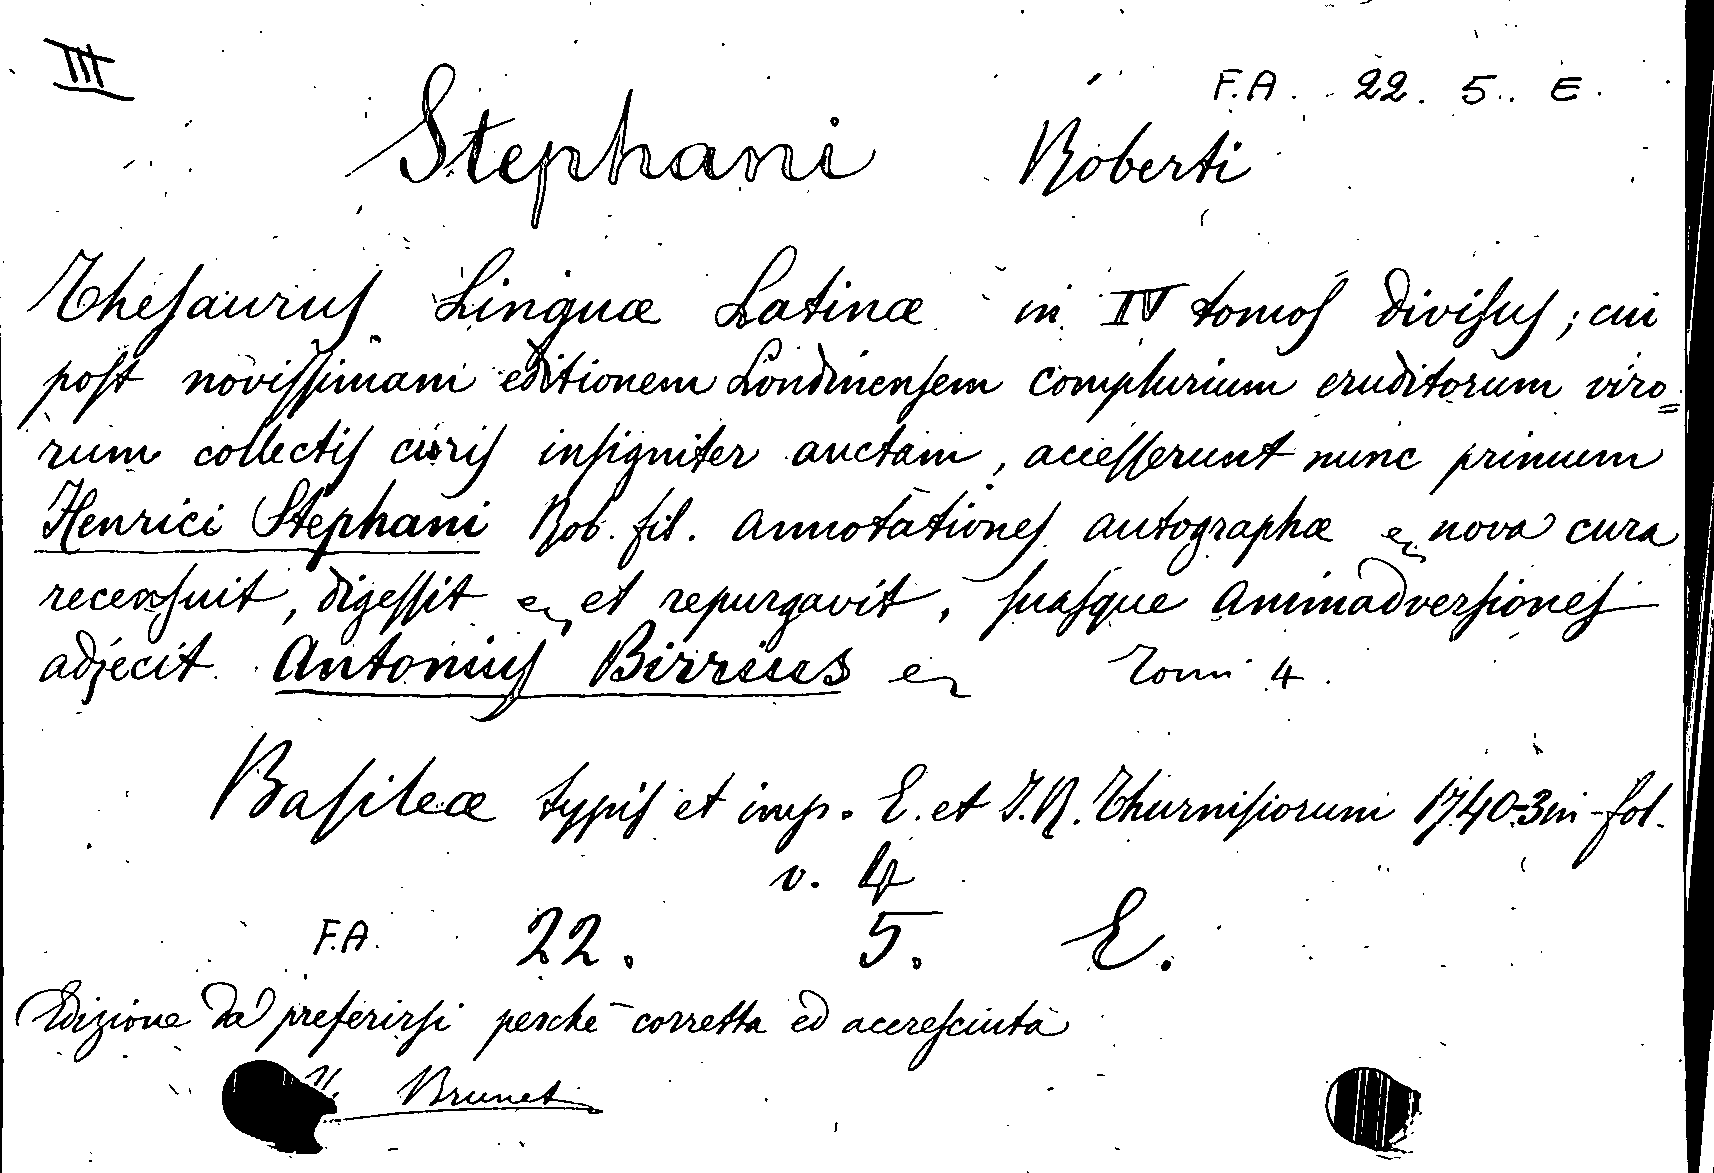 III
F.A. 22. 5. E.
Stephani Roberti
Thesaurus Linguæ Latinæ in IV tomos divisus; cui
post novissimam editionem Londinensem complurium eruditorum viro=
rum collectis curis insigniter auctam, accesserunt nunc primum
Henrici Stephani Rob. fil. annotationes autographæ nova cura
recensuit, digessit et repurgavit, suasque animadversiones
adjecit Antonius Birrius Tomi 4.
Basileæ typis et imp. E. et J.R. Thurnisiorum 1740-3 in-fol.
v. 4
F.A. 22. 5. E.
Edizione da preferirsi perchè corretta ed accresciuta
V. Brunet